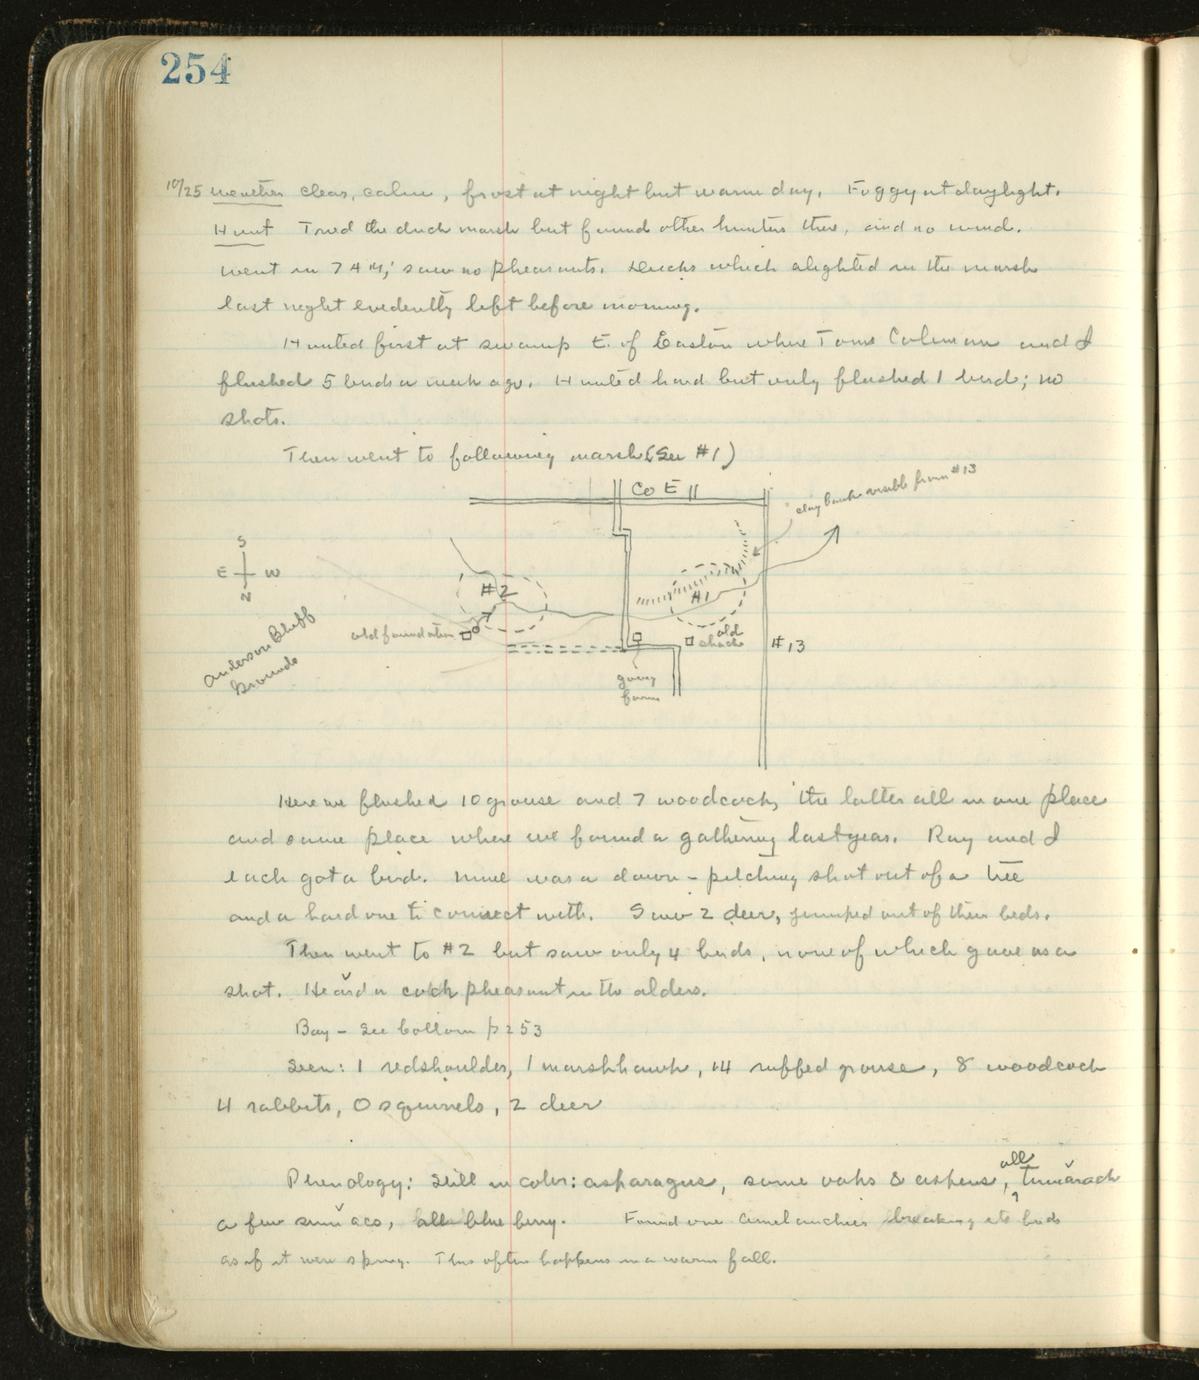 254
10/25 Weather clear, calm, frost at night but warm day. Foggy at daylight.
Hunt Tried the duck marsh but found other hunters there, and no wind.
Went in 7 AM; saw no pheasants. Ducks which alighted in the marsh
last night evidently left before morning.
Hunted first at swamp E. of Easton where Tom Coleman and I
flushed 5 birds a week ago. Hunted hard but only flushed 1 bird; no
shots.
Then went to following marsh (See #1)
Co E
clay bank visible from #13
S
E W
N
#2
#1
old foundation
old shack
#13
Anderson Bluff
Grounds
farm
Here we flushed 10 grouse and 7 woodcock, the latter all in one place
and same place where we found a gathering last year. Ray and I
each got a bird. Mine was a down-pitching shot out of a tree
and a hard one to connect with. Saw 2 deer, jumped out of their beds.
Then went to #2 but saw only 4 birds, none of which gave us a
shot. Heard a cock pheasant in the alders.
Bag - See bottom p 253
Seen: 1 redshoulder, 1 marshhawk, 14 ruffed grouse, 8 woodcock
4 rabbits, 0 squirrels, 2 deer
Phenology: Still in color: asparagus, some oaks & aspens, all tamarack
a few sumacs, all blue berry. Found one amelanchier breaking its buds
as if it were spring. This often happens in a warm fall.